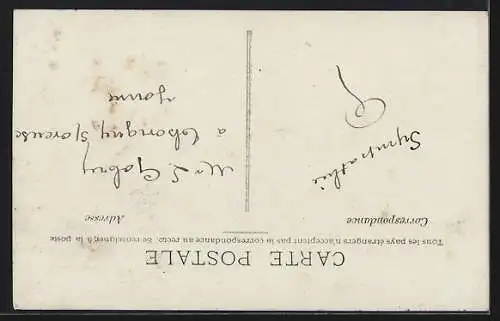 CARTE POSTALE
Tous les pays étrangers n'acceptent pas la correspondance au recto. Se renseigner à la poste
Correspondance
Adresse
Sympathie
Mr L. Gabry
à
Yonne